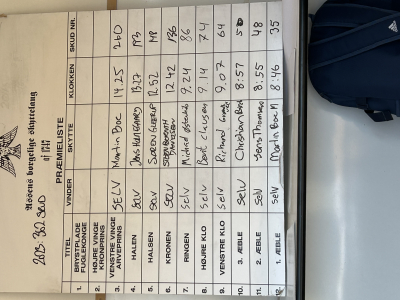 Kjöbens borgerlige Skydelaug
af 1785
PRÆMIELISTE
2015 - 302 SKUD
TITEL VINDER SKYTTE KLOKKEN SKUD NR.
1. BRYSTPLADE FUGLEKONGE
2. HØJRE VINGE KRONPRINS
3. VENSTRE VINGE ARVEPRINS SELV Martin Boe 14.25 260
4. HALEN SELV 13.27 193
5. HALSEN SELV SØREN GLERUP 12.52 148
6. KRONEN SELV 12.42 136
7. RINGEN Selv Michael 9.24 86
8. HØJRE KLO Selv Bent Clausen 9.14 74
9. VENSTRE KLO Selv Richard 9.07 64
10. 3. ÆBLE Selv Christian Boe 8:57 50
11. 2. ÆBLE Selv Jens Thomsen 8:55 48
12. 1. ÆBLE Selv Martin Boe M 8:46 35